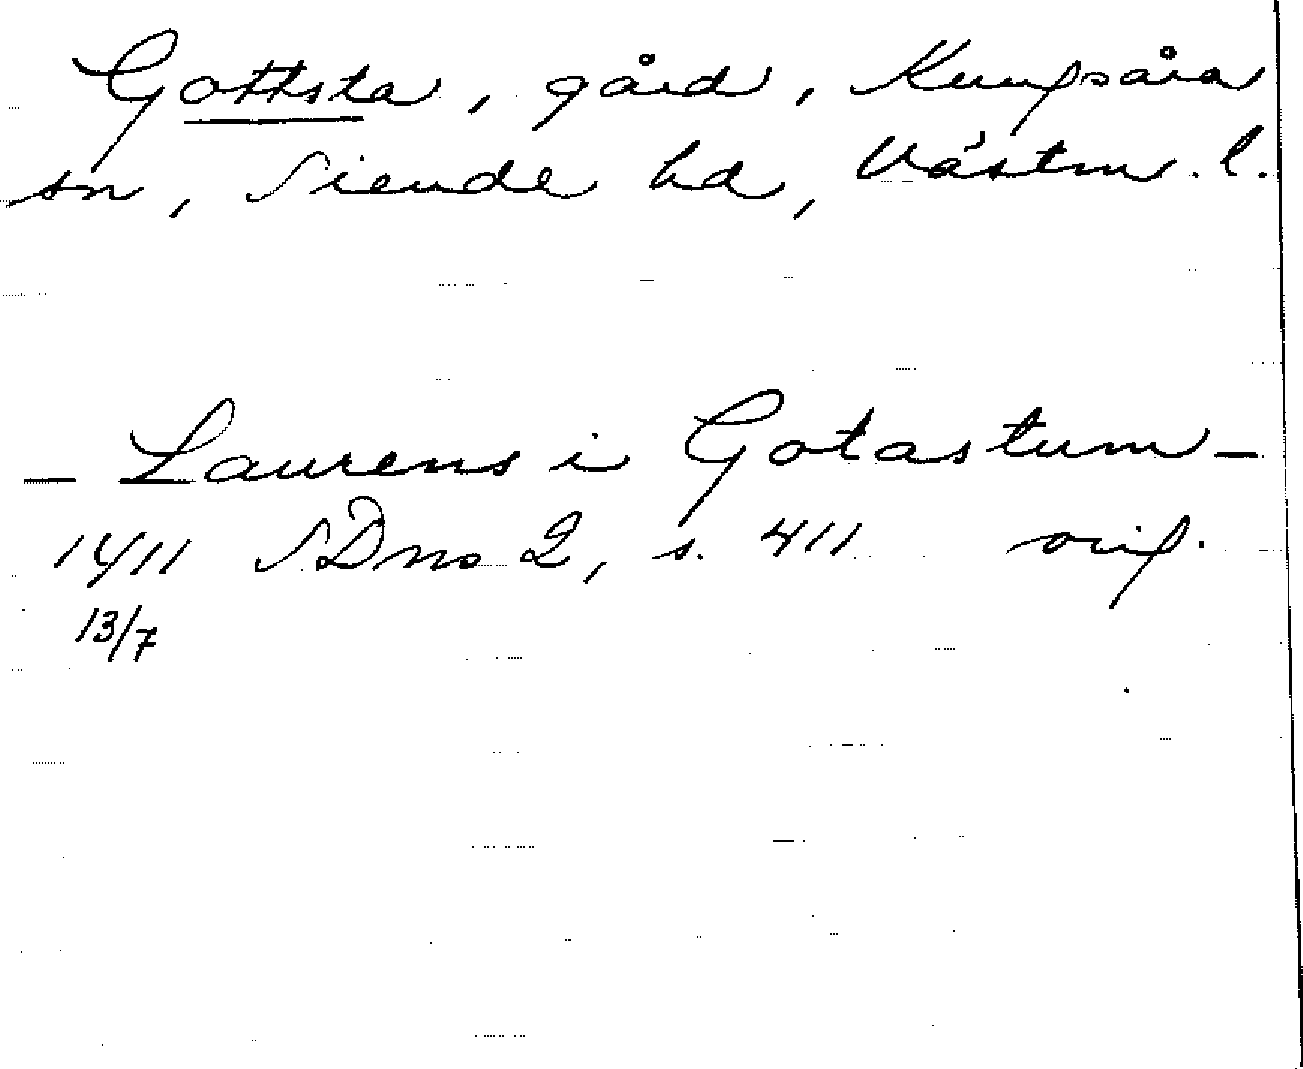 Gottsta, gård, Kungsåra
sn, Siende hd, Västm. l.
– Laurens i Gotastum –
1411 SDns 2, s. 411 orig.
13/7